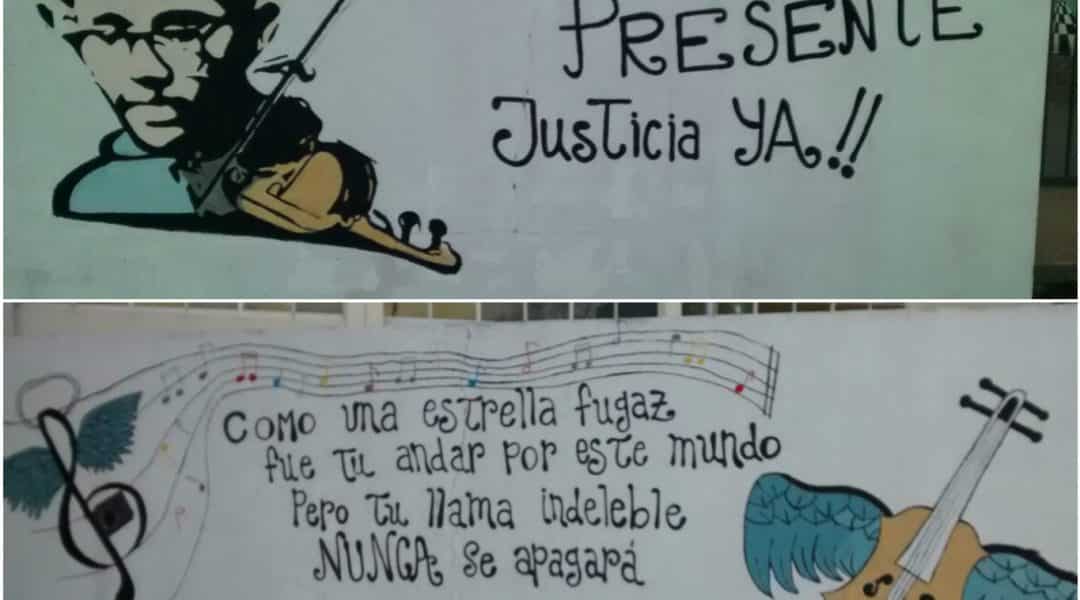 PRESENTE
Justicia YA!!
COMO una estrella fugaz
fue tu andar por este mundo
Pero tu llama indeleble
NUNCA se apagará